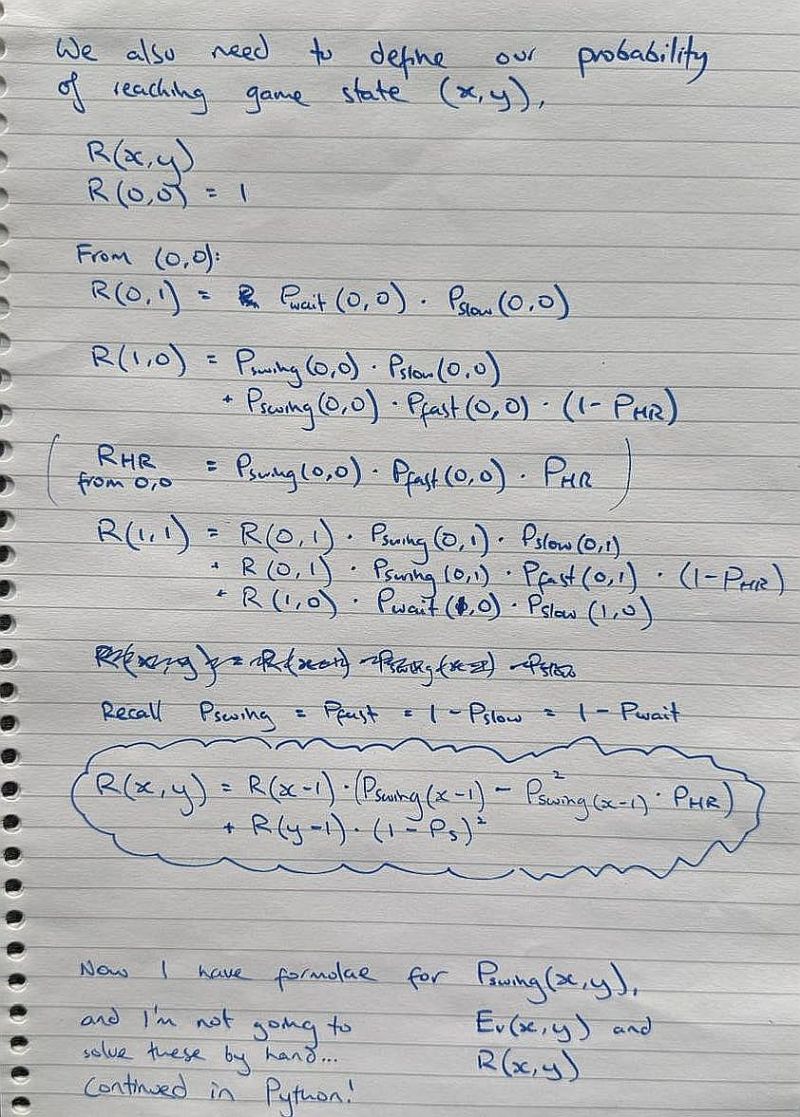 We also need to define our probability
of reaching game state (x,y),
R(x,y)
R(0,0) = 1
From (0,0):
R(0,1) = Pwait(0,0) · Pslow(0,0)
R(1,0) = Pswing(0,0) · Pslow(0,0)
+ Pswing(0,0) · Pfast(0,0) · (1 - PHR)
( RHR from 0,0 = Pswing(0,0) · Pfast(0,0) · PHR )
R(1,1) = R(0,1) · Pswing(0,1) · Pslow(0,1)
+ R(0,1) · Pswing(0,1) · Pfast(0,1) · (1 - PHR)
+ R(1,0) · Pwait(1,0) · Pslow(1,0)
Recall Pswing = Pfast = 1 - Pslow = 1 - Pwait
R(x,y) = R(x-1) · (Pswing(x-1) - P²swing(x-1) · PHR)
+ R(y-1) · (1 - Ps)²
Now I have formulae for Pswing(x,y),
and I'm not going to Ev(x,y) and
solve these by hand... R(x,y)
Continued in Python!